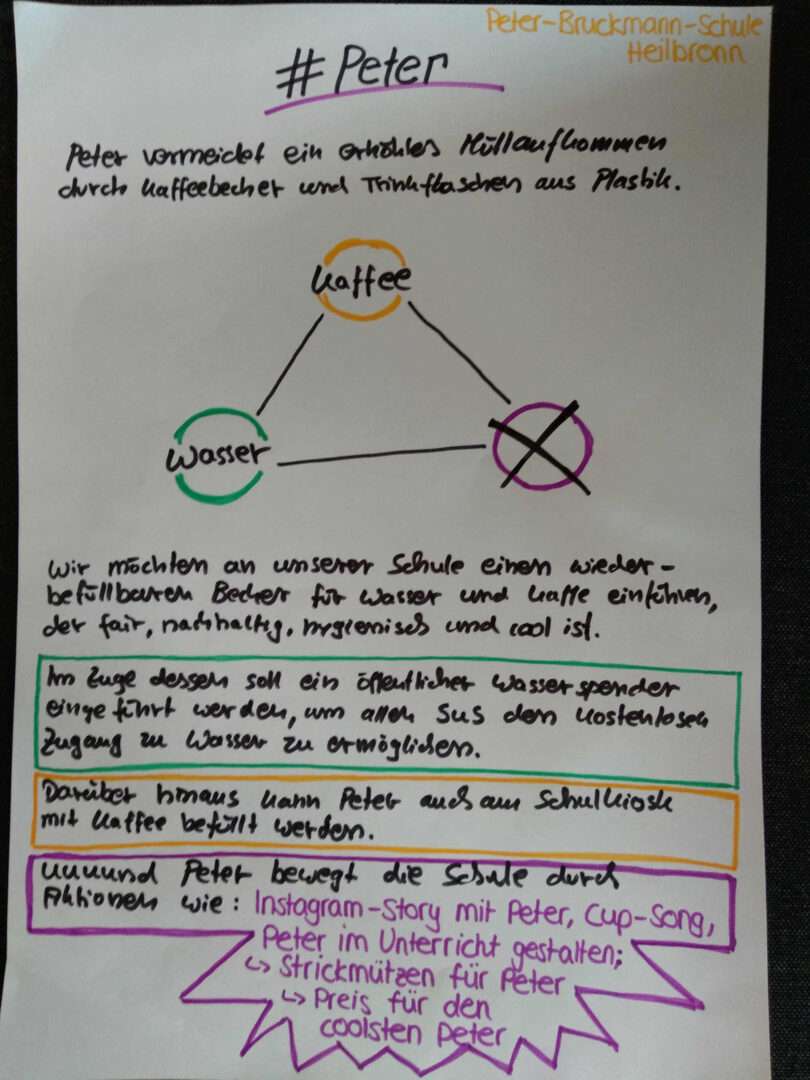 Peter-Bruckmann-Schule
Heilbronn
#Peter
Peter vermeidet ein erhöhtes Müllaufkommen
durch Kaffeebecher und Trinkflaschen aus Plastik.
Kaffee
Wasser
Wir möchten an unserer Schule einen wieder-
befüllbaren Becher für Wasser und Kaffe einführen,
der fair, nachhaltig, hygienisch und cool ist.
Im Zuge dessen soll ein öffentlicher Wasserspender
eingeführt werden, um allen SuS den kostenlosen
Zugang zu Wasser zu ermöglichen.
Darüber hinaus kann Peter auch am Schulkiosk
mit Kaffee befüllt werden.
uuuund Peter bewegt die Schule durch
Aktionen wie: Instagram-Story mit Peter, Cup-Song,
Peter im Unterricht gestalten;
↳ Strickmützen für Peter
↳ Preis für den
coolsten Peter